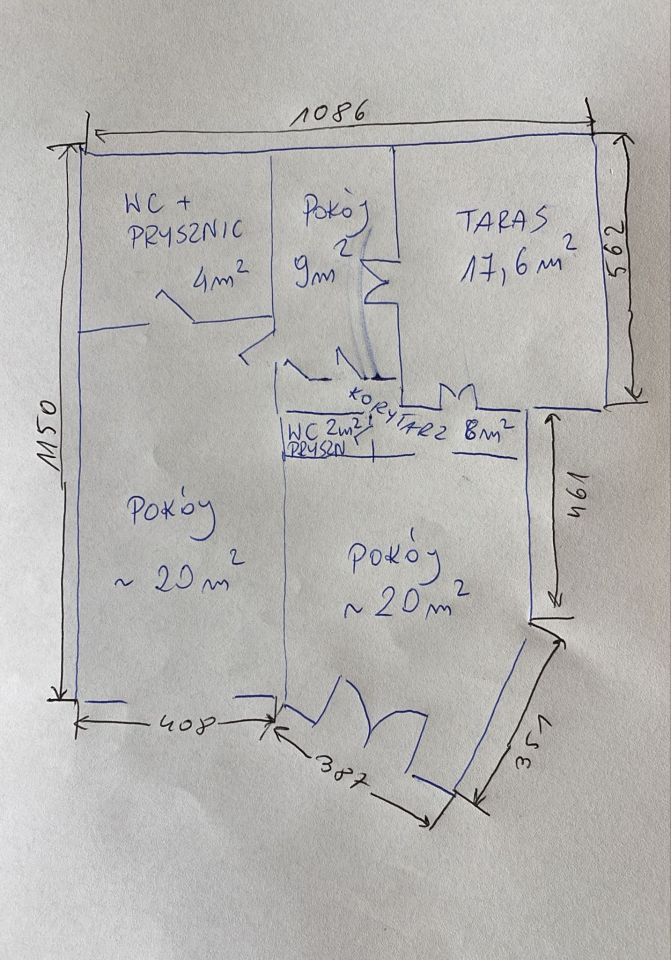 1086
WC +
PRYSZNIC
4m²
Pokój
9m²
TARAS
17,6 m²
562
1150
KORYTARZ 8m²
WC 2m²
PRYSZN
461
Pokój
~ 20 m²
Pokój
~ 20 m²
408
387
351